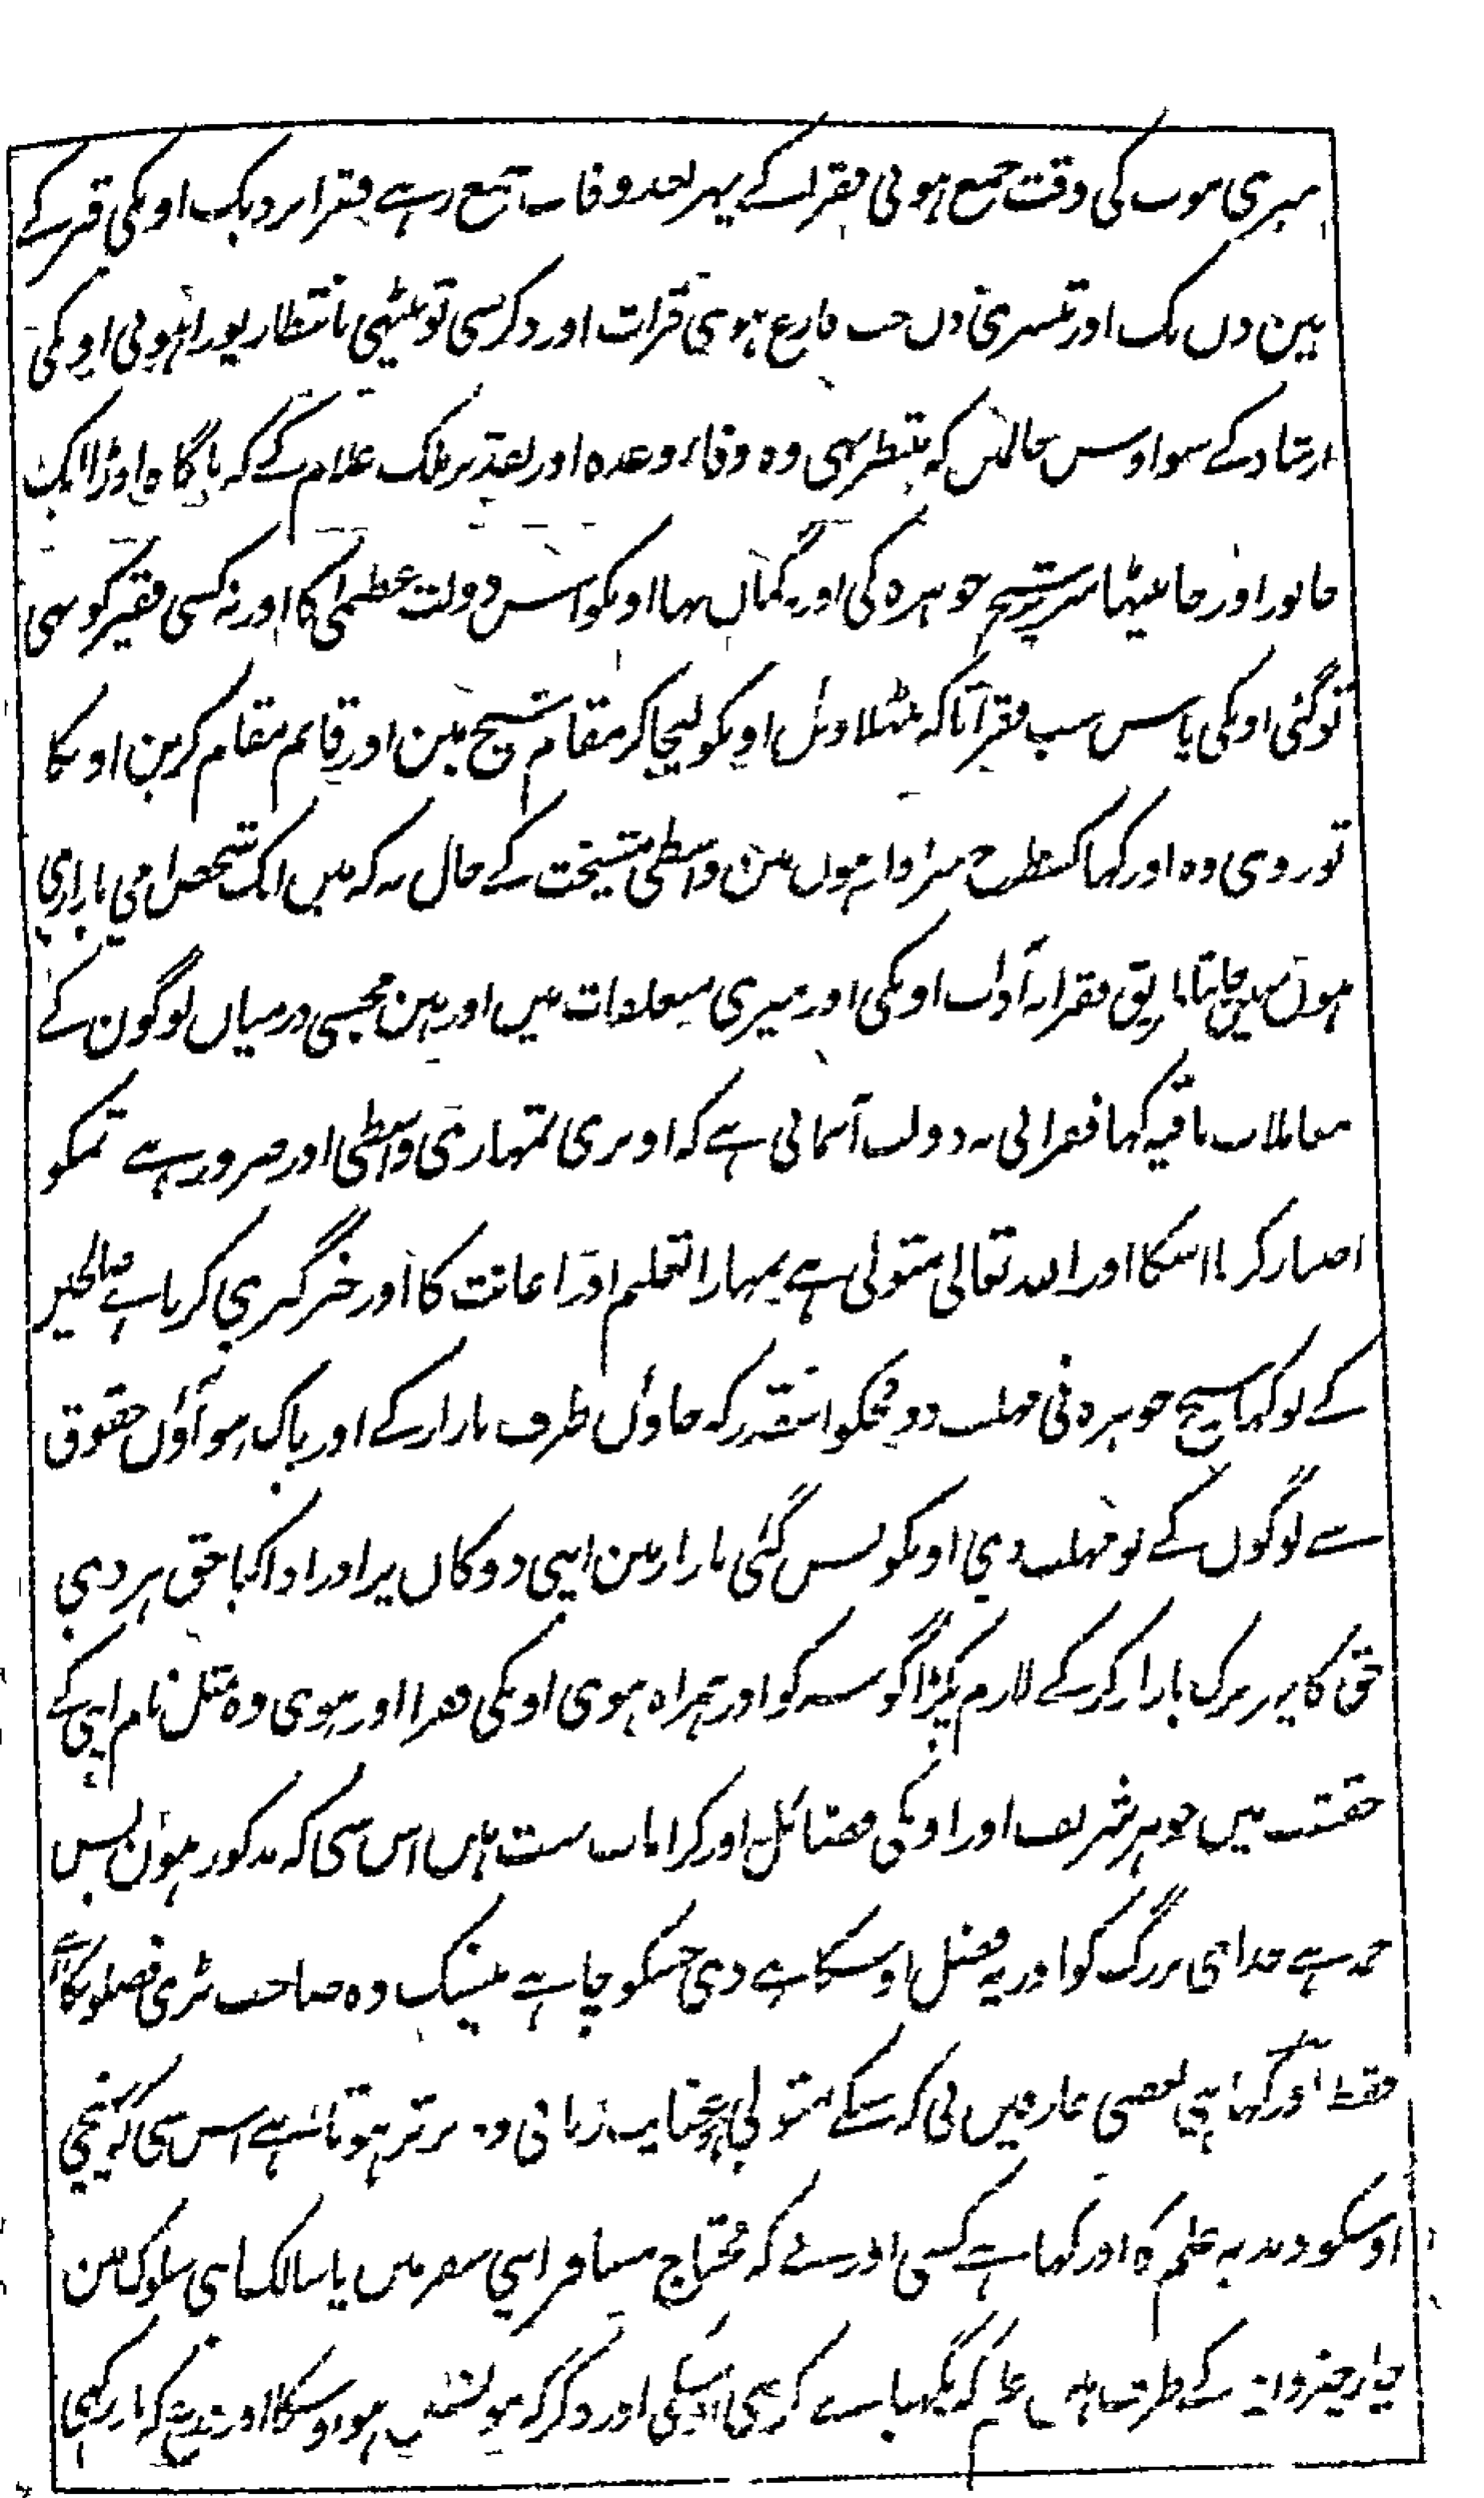 میری موت کی وقت جمع ہوئی فقرا کے پہر بعد وفات جمع رہے فقرا نزدیک اونکی قبر کے
تین دن تک اور تیسری دن جب فارغ ہوی قرات اور ذکر سی تو بیٹھی بانتظار پورا ہونی اونکی
ارشاد کے سو اوس حالمیں کہ منتظر تہی وہ وفاء وعدہ اور تقدیر ملک علام کے کہ ناگاہ اوڑا ایک
جانور اور جا بیٹھا سر پر شیخ جوہرہ کی اور نہ گمان تہا اونکو اس دولت عظمیٰ کا اور نہ کسی فقیر کو تہی
تو گئی اونکی پاس سب فقرا تاکہ بٹھلاویں اونکو لیجا کر مقام شیخ مین اور قائم مقام کرین اونکا
تو رودی وہ اور کہا کسطرح سزاوار ہوں مین واسطی مشیخت کے حال یہ کہ میں ایک شخص امی بازاری
ہوں نہیں جانتا طریق فقرا نہ آداب اونکی اور میری معاملات میں اور ہین مجسی درمیاں لوگون کے
معاملات باقیہ کہا فقرا نی یہ دولت آسمانی ہے کہ اوتری تمہاری واسطی اور ضرور ہے تمکو
اختیار کرنا اسکا اور اللہ تعالی متولی ہے تمہارا تعلیم اور اعانت کا اور خبرگیری کرتا ہے صالحین
کے تو کہا شیخ جوہرہ نی مہلت دو مجکو اسقدر کہ جاوں طرف بازار کے اور پاک ہو آؤں حقوق
سے لوگوں کے تو مہلت دی اونکو پس گئی بازار مین اپنی دوکاں پر اور ادا کیا حق ہر ذی
حق کا پہر ترک بازار کر کے لازم پکڑا گوشہ کو اور ہمراہ ہوی اونکی فقرا اور ہوی وہ مثل نام اپنی کے
حقیقت میں جوہر شریف اور اونکی فضائل اور کرامات بہت ہیں اس سی کہ مذکور ہوں پس
حمد ہے خدای بزرگ کو اور یہ فضل اوسکا ہے دی جسکو چاہے بیشک وہ صاحب بڑی فضلونکا ہے
فقط اور کہا ہی بعضی عارفین نی کہ جسکے متولی ہو عنایت ربانی وہ برتر ہوتا ہے اس سی کہ پہنچی
اوسکو وہ بہ علم کہ اور کہا ہے کسی اور نے کہ محتاج مسافر اپنی سفر میں یا سالک اپنی سلوک مین
چار چیز و